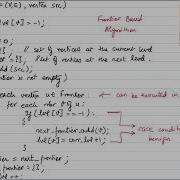 = (V,E), vertex src)
Frontier Based
Algorithm
lvl[v] = -1;
= 0;
{}; // set of vertices at the current level
{}; // set of vertices at the next level.
add(src);
frontier is not empty)
each vertex u ∈ frontier: can be executed in
for each nbr v of u:
if (lvl[v] == -1)
{
next_frontier.add(v);
lvl[v] = curr_lvl+1;
}
race condition
benign
frontier = next_frontier;
frontier = {};
lvl++;